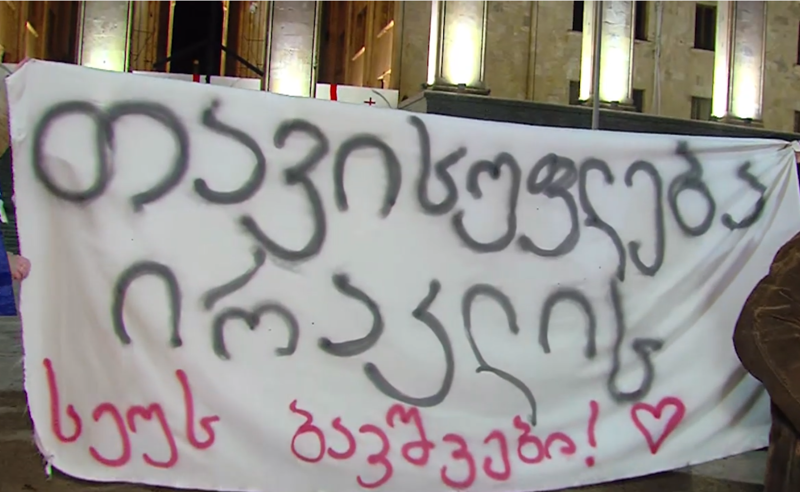 თავისუფლება
ირაკლის
სეუს ბავშვები! ♡